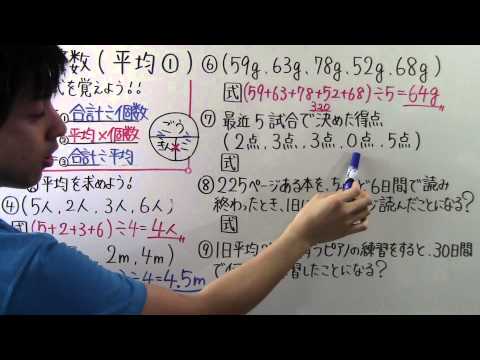 算数(平均①)
式を覚えよう!!
合計÷個数
平均×個数
合計÷平均
ごう
平均を求めよう!
④(5人,2人,3人,6人)
式(5+2+3+6)÷4=4人
2m,4m)
)÷4=4.5m
⑥(59g,63g,78g,52g,68g)
式(59+63+78+52+68)÷5=64g
320
⑦最近5試合で決めた得点
(2点,3点,3点,0点,5点)
式
⑧225ページある本を、
6日間で読み
終わったとき、1日に
読んだことになる?
式
⑨1日平均
ピアノの練習をすると、30日間
で
練習したことになる?